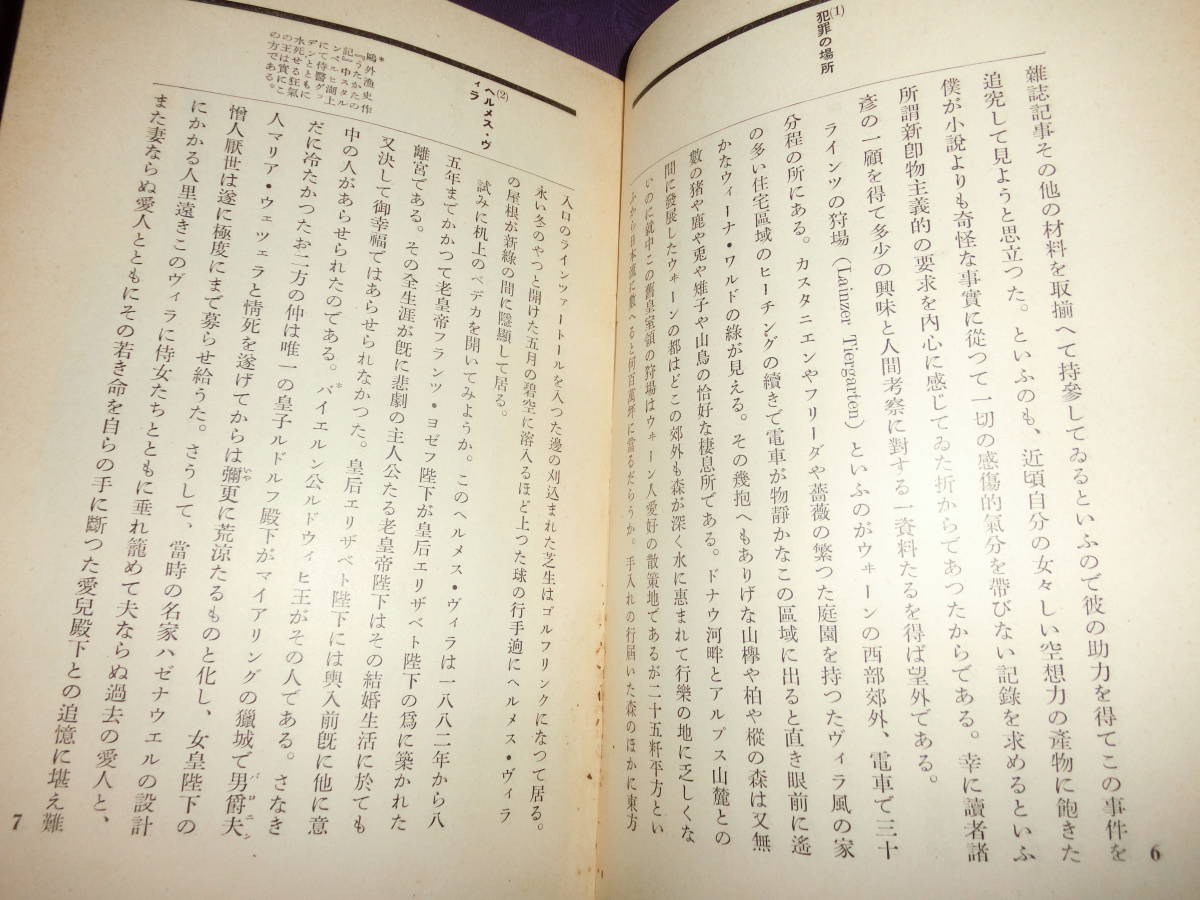 (1)
犯罪の場所
雜誌記事その他の材料を取揃へて持參してゐるといふので彼の助力を得てこの事件を
追究して見ようと思立つた。といふのも、近頃自分の女々しい空想力の產物に飽きた
僕が小說よりも奇怪な事實に從つて一切の感傷的氣分を帶びない記錄を求めるといふ
所謂新卽物主義的の要求を內心に感じてゐた折からであつたからである。幸に讀者諸
彥の一顧を得て多少の興味と人間考察に對する一資料たるを得ば望外である。
ラインツの狩場(Lainzer Tiergarten)といふのがウヰーンの西部郊外、電車で三十
分程の所にある。カスタニエンやフリーダや薔薇の繁つた庭園を持つたヴィラ風の家
の多い住宅區域のヒーチングの續きで電車が物靜かなこの區域に出ると直き眼前に遙
かなウィーナ・ワルドの綠が見える。その幾抱へもありげな山欅や柏や樅の森は又無
數の猪や鹿や兎や雉子や山鳥の恰好な棲息所である。ドナウ河畔とアルプス山麓との
間に發展したウヰーンの都はどこの郊外も森が深く水に惠まれて行樂の地に乏しくな
いのに就中この舊皇室領の狩場はウヰーン人愛好の散策地であるが二十五粁平方とい
ふから日本流に數へると何百萬坪に當るだらうか。手入れの行屆いた森のほかに東方
6
入口のラインツァートールを入つた邊の刈込まれた芝生はゴルフリンクになつて居る。
永い冬のやつと開けた五月の碧空に溶入るほど上つた球の行手遙にヘルメス・ヴィラ
の屋根が新綠の間に隱顯して居る。
(2)
ヘルメス・ヴ
ィラ
試みに机上のベデカを開いてみようか。このヘルメス・ヴィラは一八八二年から八
五年までかかつて老皇帝フランツ・ヨゼフ陛下が皇后エリザベト陛下の爲に築かれた
離宮である。その全生涯が旣に悲劇の主人公たる老皇帝陛下はその結婚生活に於ても
又決して御幸福ではあらせられなかつた。皇后エリザベト陛下には輿入前旣に他に意
中の人があらせられたのである。*バイエルン公ルドウィヒ王がその人である。さなき
だに冷たかつたお二方の仲は唯一の皇子ルドルフ殿下がマイアリングの獵城で男爵夫
人マリア・ウェツェラと情死を遂げてからは彌更に荒涼たるものと化し、女皇陛下の
憎人厭世は遂に極度にまで募らせ給うた。さうして、當時の名家ハゼナウエルの設計
にかかる人里遠きこのヴィラに侍女たちとともに垂れ籠めて夫ならぬ過去の愛人と、
また妻ならぬ愛人とともにその若き命を自らの手に斷つた愛兒殿下との追憶に堪え難
*
鷗外漁史作
『うたかたの
記』中スタル
ンベルヒ湖上
にて侍醫グッ
デンとともに
水死せる狂氣
の王は實にこ
の方である。
7